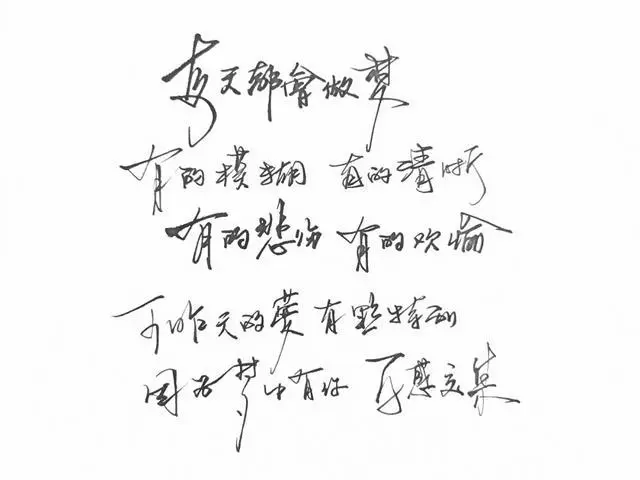 每天都會做梦
有的模糊 有的清晰
有的悲伤 有的欢愉
可昨天的夢有點特别
因为梦中有你 百感交集